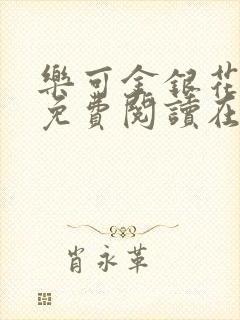 樂可金銀花
免費閱讀在
肖永革